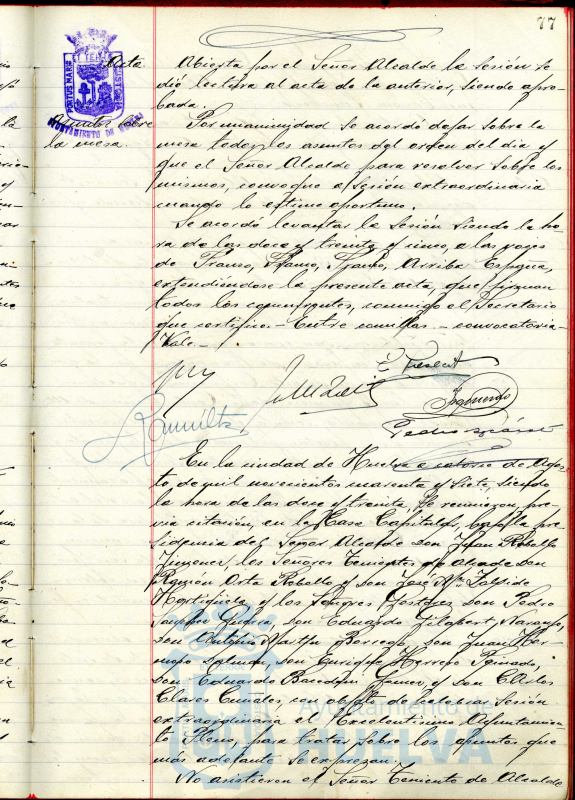 77
Acta.
Abierta por el Señor Alcalde la sesión se
dió lectura al acta de la anterior, siendo apro-
bada.
Asuntos sobre
la mesa.
Por unanimidad se acordó dejar sobre la
mesa todos los asuntos del orden del dia y
que el Señor Alcalde para resolver sobre los
mismos, convoque a sesión extraordinaria
cuando lo estime oportuno.
Se acordó levantar la sesión siendo la ho-
ra de las doce y treinta y cinco, a las voces
de Franco, Franco, Franco, Arriba España,
extendiendose la presente acta, que firman
todos los concurrentes, conmigo el Secretario
que certifico.- Entre comillas - convocatoria-
Vale.-
En la ciudad de Huelva a catorce de Agos-
to, de mil novecientos cuarenta y siete, siendo
la hora de las doce y treinta, se reunieron, pre-
via citación, en la Casa Capitular, bajo la pre-
sidencia del Señor Alcalde don Juan Rebollo
Jimenez, los Señores Tenientes de Alcalde don
Ramón Orta Rebollo y don José Mª
y los Señores Gestores don Pedro
don Eduardo Gilabert Naranjo,
don Antonio Martín Borrego, don Juan
don Enrique Peinado,
don Eduardo y don Carlos
Clares con objeto de celebrar Sesión
extraordinaria el Excelentisimo Ayuntamien-
to Pleno, para tratar sobre los asuntos que
mas adelante se expresan.
No asistieron el Señor Teniente de Alcalde
PORTUS MARIS ET TERRAE CUSTODIA
AYUNTAMIENTO DE HUELVA
Ayuntamiento de
HUELVA